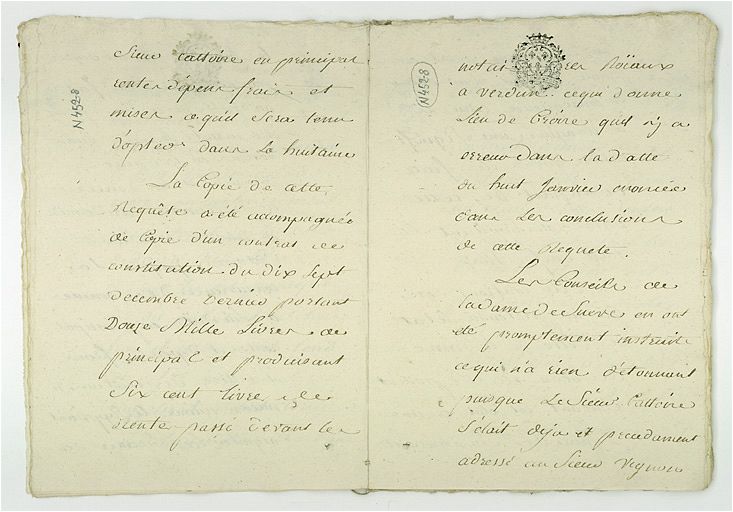 Sieur Cattoire en principal
rentes dépens frais et
mises ce quil sera tenu
d'opter dans la huitaine
La Copie de cette
Requête a été acompagnée
de Copie d'un contrat de
constitution du dix Sept
decembre dernier portant
Douze Mille Livres de
principal et produisant
Six cent livre de
Rente passé devant les
N452-8
notaires Roïaux
a verdun ce qui donne
Lieu de Croire quil y a
erreur dans la datte
du huit Janvier enoncée
dans les conclusions
de cette Requete.
Les Conseils de
la dame de en ont
été promptement instruits
ce qui n'a rien d'étonnant
puisque Le Sieur Cattoire
S'etait deja et precedament
adressé au Sieur vignon
N452-8